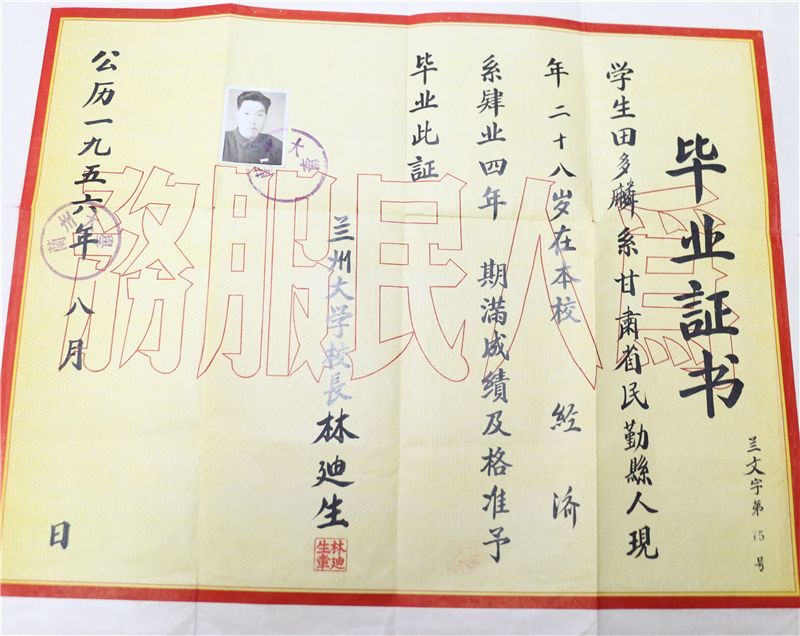 毕业証书
兰文字第15号
学生田多麟系甘肃省民勤縣人現
年二十八岁在本校 経济
系肄业四年 期满成績及格准予
毕业此証
兰州大学校長 林迪生
林迪生章
公历一九五六年 八月 日
為人民服務